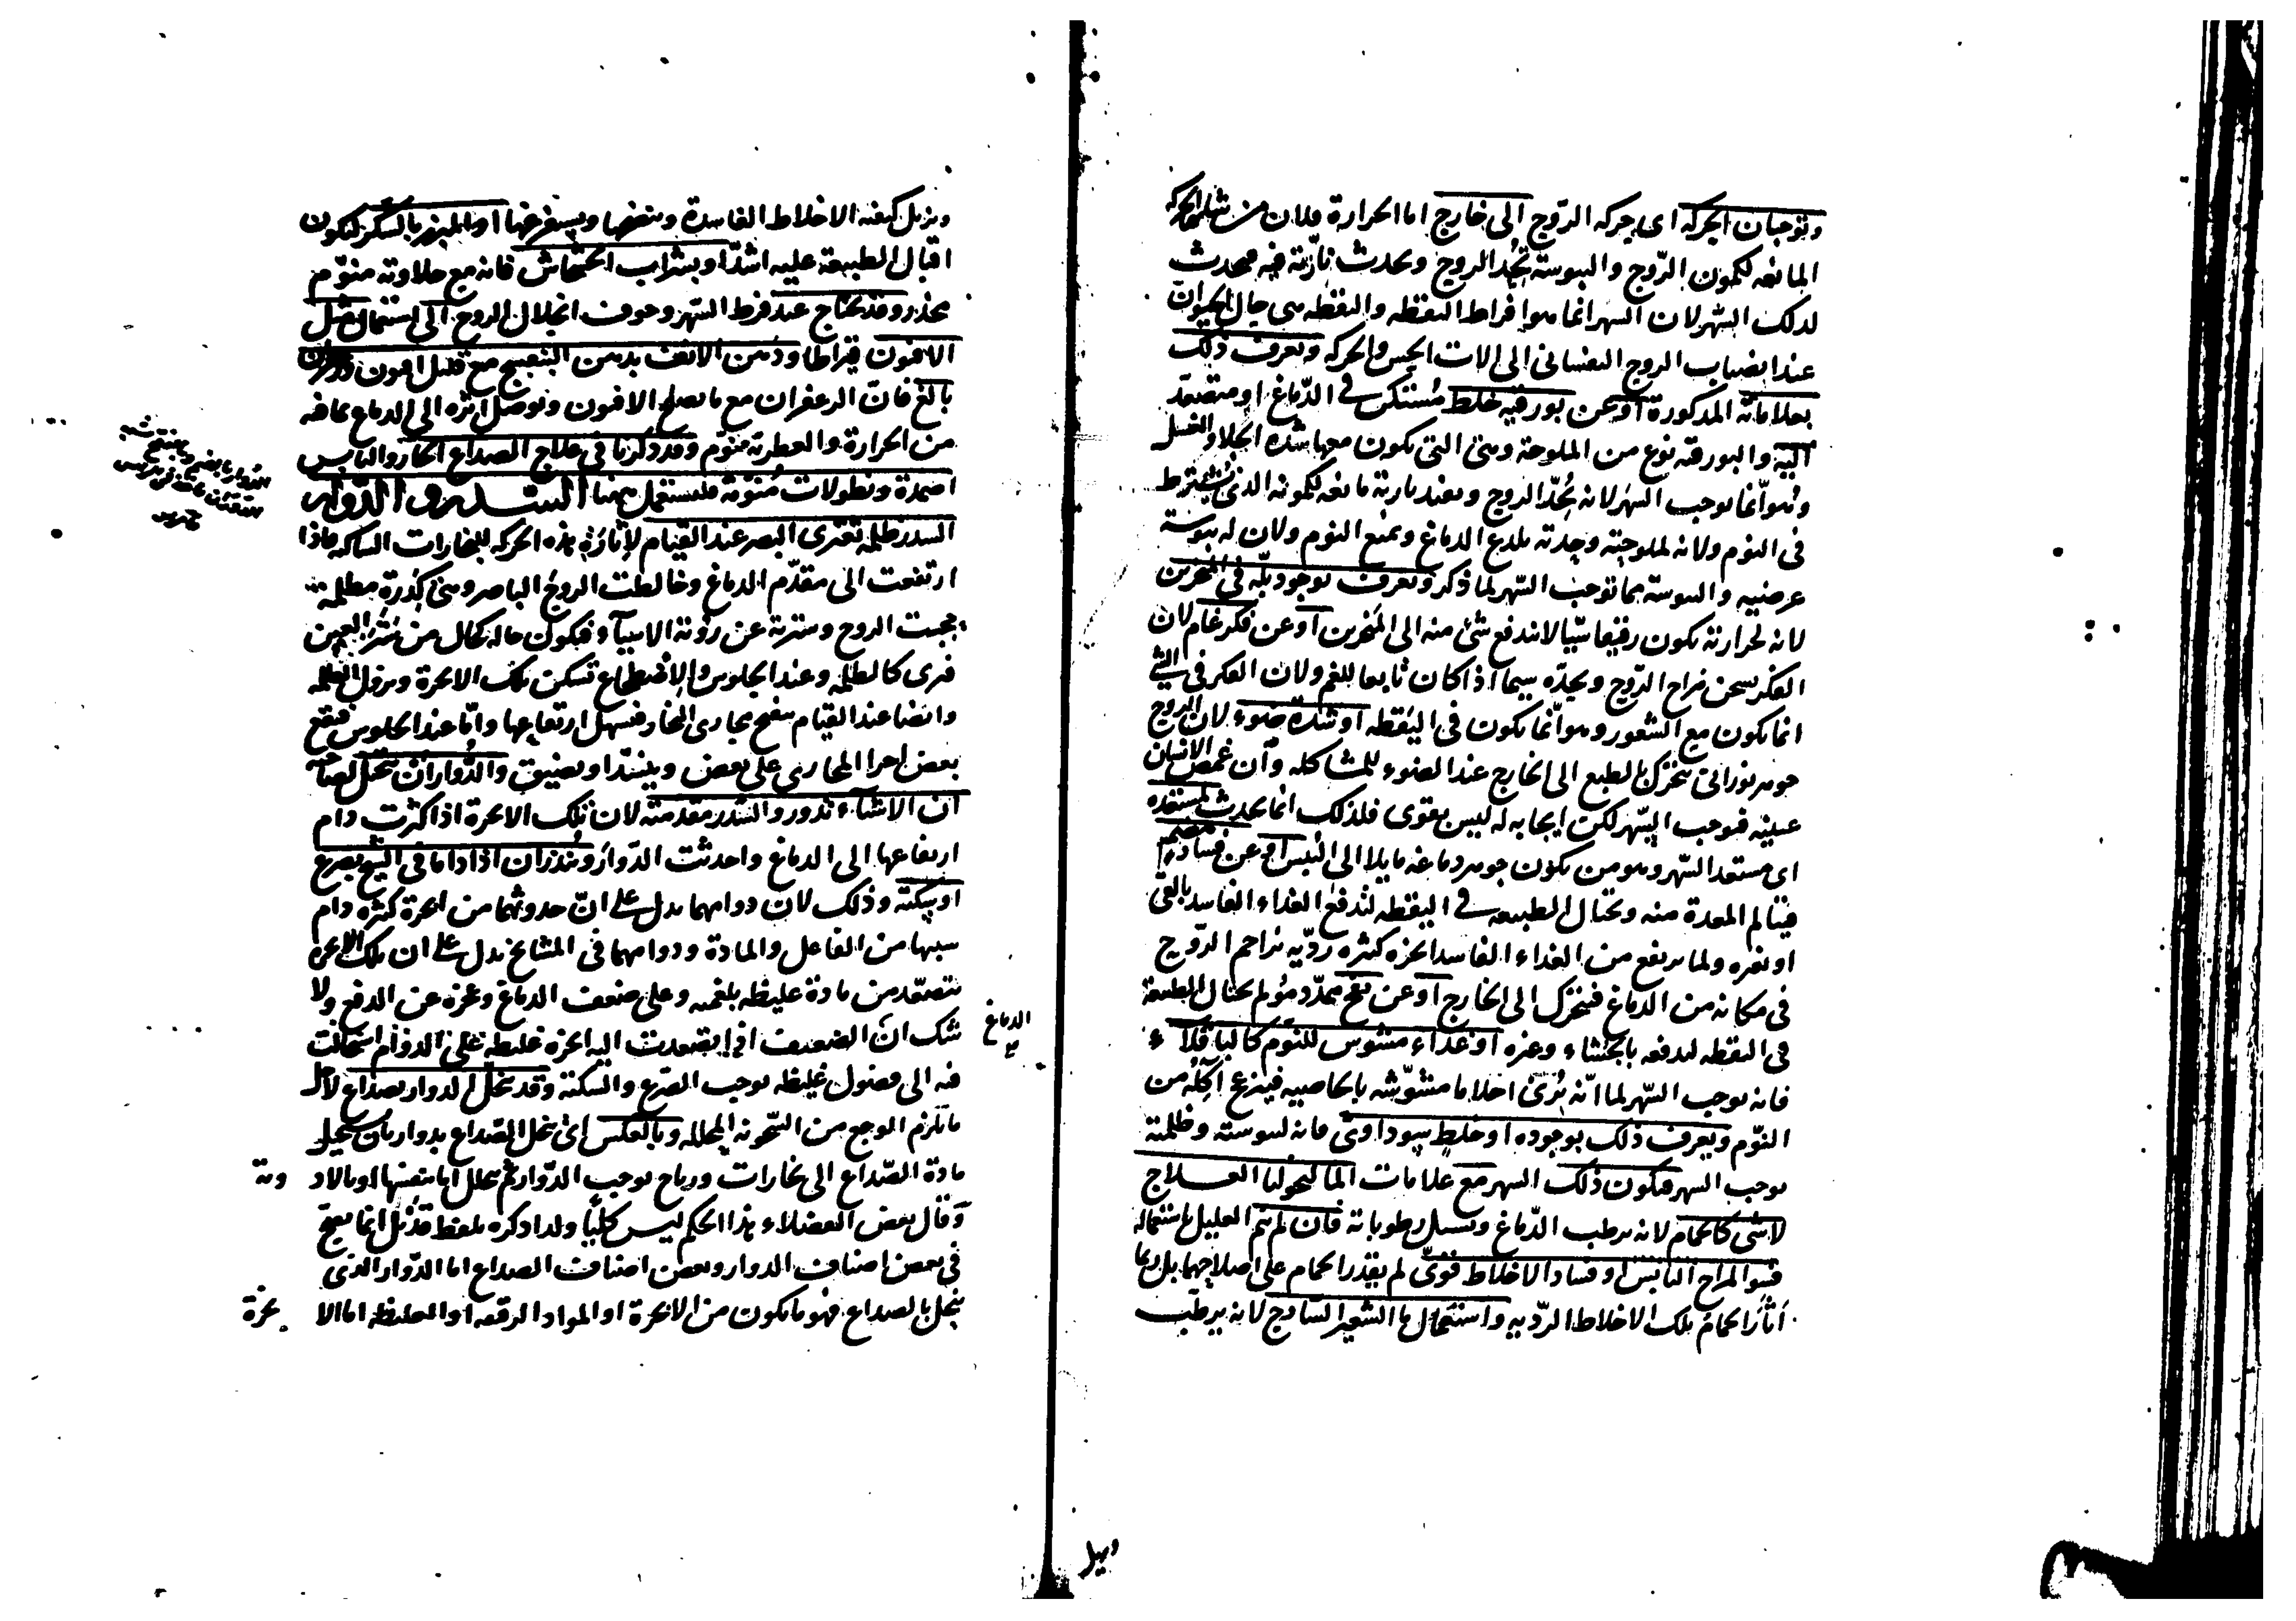 وتوجبان الحركة اى حركه الروح الى خارج اما الحرارة فلان من شانها الحركه
المانعه لكمون الروح واليبوسة تحد الروح وتحدث نارية فيه فيحدث
لذلك السهر لان السهر انما هو افراط اليقظه واليقظه هى حال الحيوان
عند انصباب الروح النفسانى الى الات الحس والحركه ويعرف ذلك
بعلاماته المذكورة او عن بورقيه خلط مستكن فى الدماغ او متصعد
اليه والبورقيه نوع من الملوحة وهى التى تكون معها شدة الجلاء والغسل
وهو انما يوجب السهر لانه يحد الروح ويفيد نارية مانعه لكمونه الذى يشترط
فى النوم ولانه لملوحته وحدته يلدع الدماغ ويمنع النوم ولان له يبوسة
عرضيه واليبوسة مما توجب السهر لما ذكر ويعرف بوجود بلة فى المنخرين
لانه لحرارته يكون رقيقا سيالا يندفع شئ منه الى المنخرين او عن فكر غام لان
الفكر يسخن مزاج الروح ويحده سيما اذا كان تابعا للغم ولان الفكر فى الشئ
انما يكون مع الشعور وهو انما يكون فى اليقظه او شدة ضوء لان الروح
جوهر نورانى يتحرك بالطبع الى الخارج عند الضوء للمشاكله وان غمض الانسان
عينيه فيوجب السهر لكن ايجابه له ليس بقوى فلذلك انما يحدث لمستعده
اى مستعد السهر وهو من يكون جوهر دماغه مايلا الى اليبس او عن فساد هضم
فيتالم المعدة منه وتحتال الطبيعه فى اليقظه لتدفع الغذاء الفاسد بالقئ
او غيره ولما يرتفع من الغذاء الفاسد ابخرة كثيره رديه تزاحم الروح
فى مكانه من الدماغ فيتحرك الى الخارج او عن نفخ ممدد مؤلم تحتال الطبيعة
فى اليقظه لدفعه بالجشاء وغيره او غذاء مشوش للنوم كالباقلاء
فانه يوجب السهر لما انه يرى احلاما مشوشه بالخاصيه فيفزع اكله من
النوم ويعرف ذلك بوجوده او خلط سوداوى فانه ليبوسته وظلمته
يوجب السهر فيكون ذلك السهر مع علامات الماليخوليا العلاج
لا شئ كالحمام لانه يرطب الدماغ ويسيل رطوباته فان لم ينم العليل باستعماله
فسوء المزاج اليابس او فساد الاخلاط قوى لم يقدر الحمام على اصلاحهما بل ربما
اثار الحمام تلك الاخلاط الرديه واستعمال ماء الشعير الساذج لانه يرطب
ويزيل كيفيه الاخلاط الفاسدة وينضجها ويستفرغها او المبزر بالسكر ليكون
اقبال الطبيعة عليه اشد او بشراب الخشخاش فانه مع حلاوته منوم
مخدر وقد يحتاج عند فرط السهر وخوف انحلال الروح الى استعمال مثل
الافيون قيراطا ودهن الانف بدهن البنفسج مع قليل افيون وزعفران
بالغ فان الزعفران مع ما يصلح الافيون وتوصل اثره الى الدماغ بما فيه
من الحرارة والعطرية منوم وقد ذكرنا فى علاج الصداع الحار واليابس
اضمدة ونطولات منومة فليستعمل ههنا السدر والدوار
السدر ظلمة تعترى البصر عند القيام لاثارة هذه الحركه للبخارات الساكنه فاذا
ارتفعت الى مقدم الدماغ وخالطت الروح الباصر وهى كدرة مظلمة
حجبت الروح وسترته عن رؤية الاشياء فيكون حاله كحال من ستر العين
فيرى كالظلمه وعند الجلوس والاضطجاع تسكن تلك الابخرة ويزول الظلمه
وايضا عند القيام ينفتح مجارى البخار فيسهل ارتفاعها واما عند الجلوس فيقع
بعض اجزا المجارى على بعض وينسد او يضيق والدوار ان يتخيل لصاحبه
ان الاشياء تدور والسدر مقدمته لان تلك الابخرة اذا كثرت دام
ارتفاعها الى الدماغ واحدثت الدوار ومنذران اذا داما فى الشيخ بصرع
او سكتة وذلك لان دوامهما يدل على ان حدوثهما من ابخرة كثيره دام
سببها من الفاعل والمادة ودوامهما فى المشايخ يدل على ان تلك الابخره
تتصعد من مادة غليظه بلغميه وعلى ضعف الدماغ وعجزه عن الدفع ولا
شك ان الضعيف اذا تصعدت اليه ابخرة غليظه على الدوام استحالت
فيه الى فضول غليظه يوجب الصرع والسكتة وقد ينحل الدوار بصداع لاجل
ما يلزم الوجع من السخونه المحلله وبالعكس اى ينحل الصداع بدوار بان يستحيل
مادة الصداع الى بخارات ورياح يوجب الدوار ثم يتحلل اما بنفسها او بالادوية
وقال بعض الفضلاء هذا الحكم ليس كليا ولذا ذكره بلفظ قد بل انما يصح
فى بعض اصناف الدوار وبعض اصناف الصداع اما الدوار الذى
ينحل بالصداع فهو ما يكون من الابخرة او المواد الرقيقه او الغليظه اما الابخرة
الدماغ